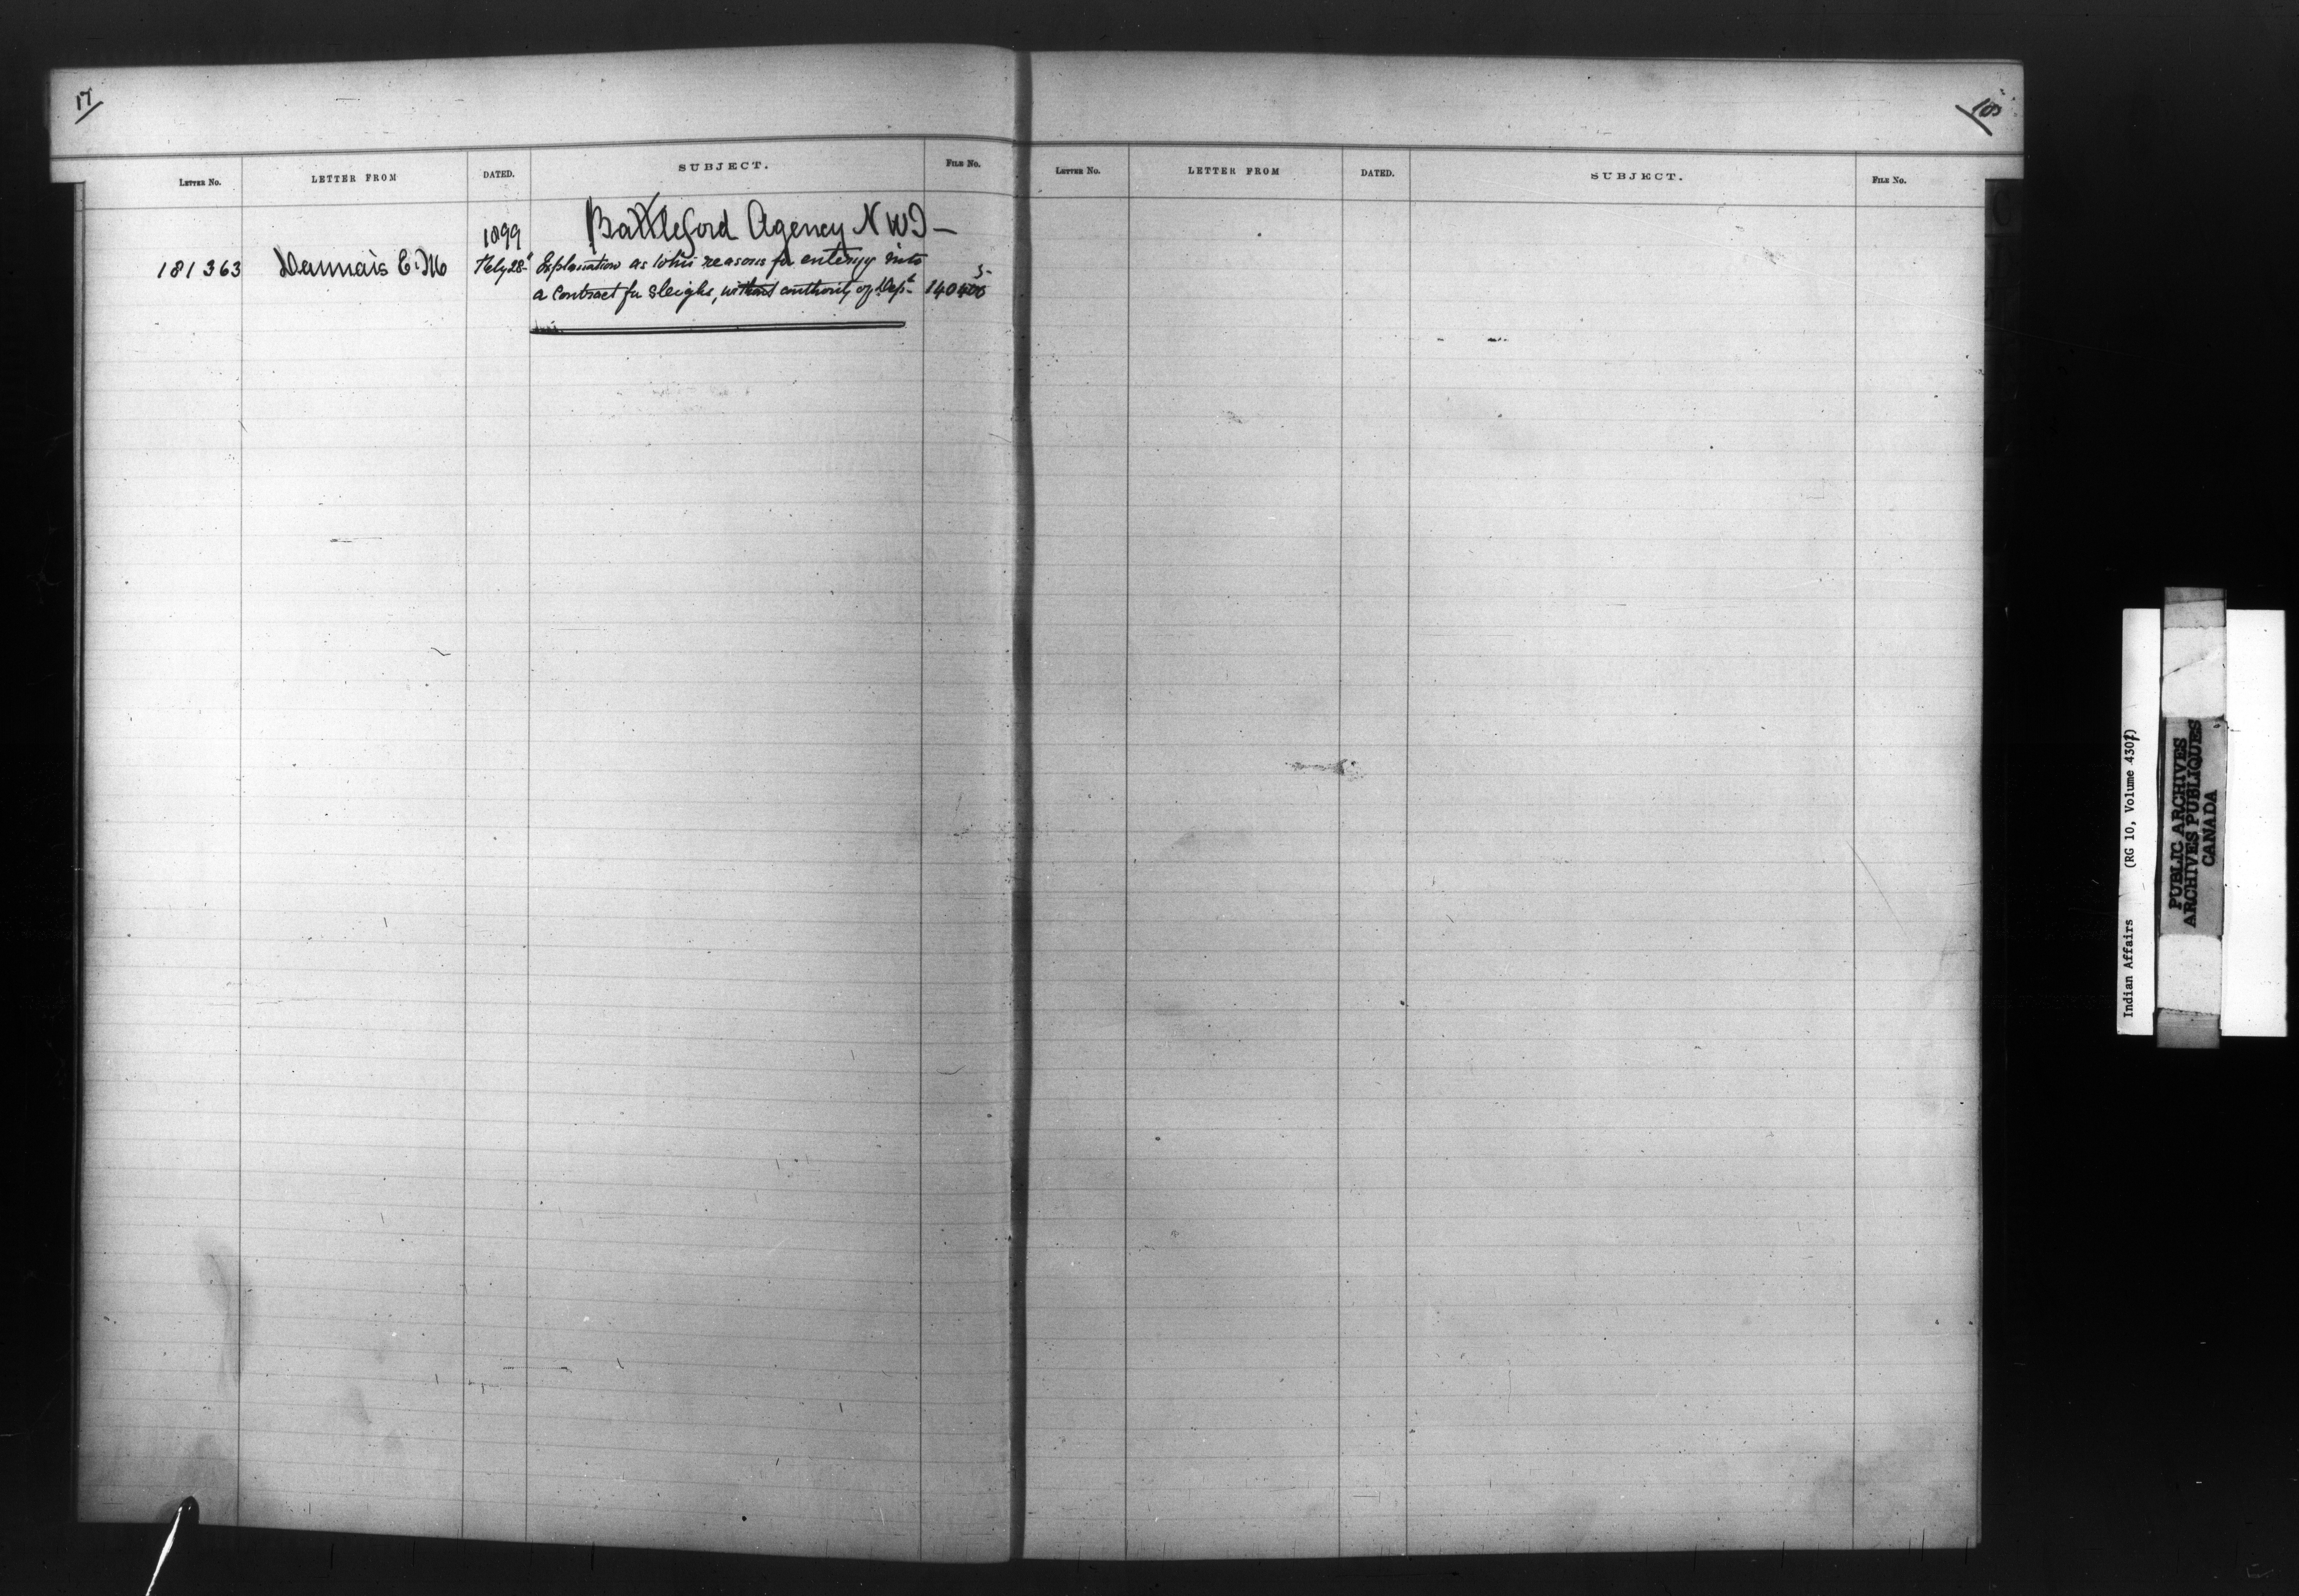 17
LETTER NO. LETTER FROM DATED. SUBJECT. FILE NO.
Battleford Agency N W T –
1899
181363 Daunais E. M. Feby 28" Explanation as to his reasons for entering into
a Contract for Sleighs, without authority of Dept 140
LETTER NO. LETTER FROM DATED. SUBJECT. FILE NO.
Indian Affairs (RG 10, Volume 4307)
PUBLIC ARCHIVES
ARCHIVES PUBLIQUES
CANADA